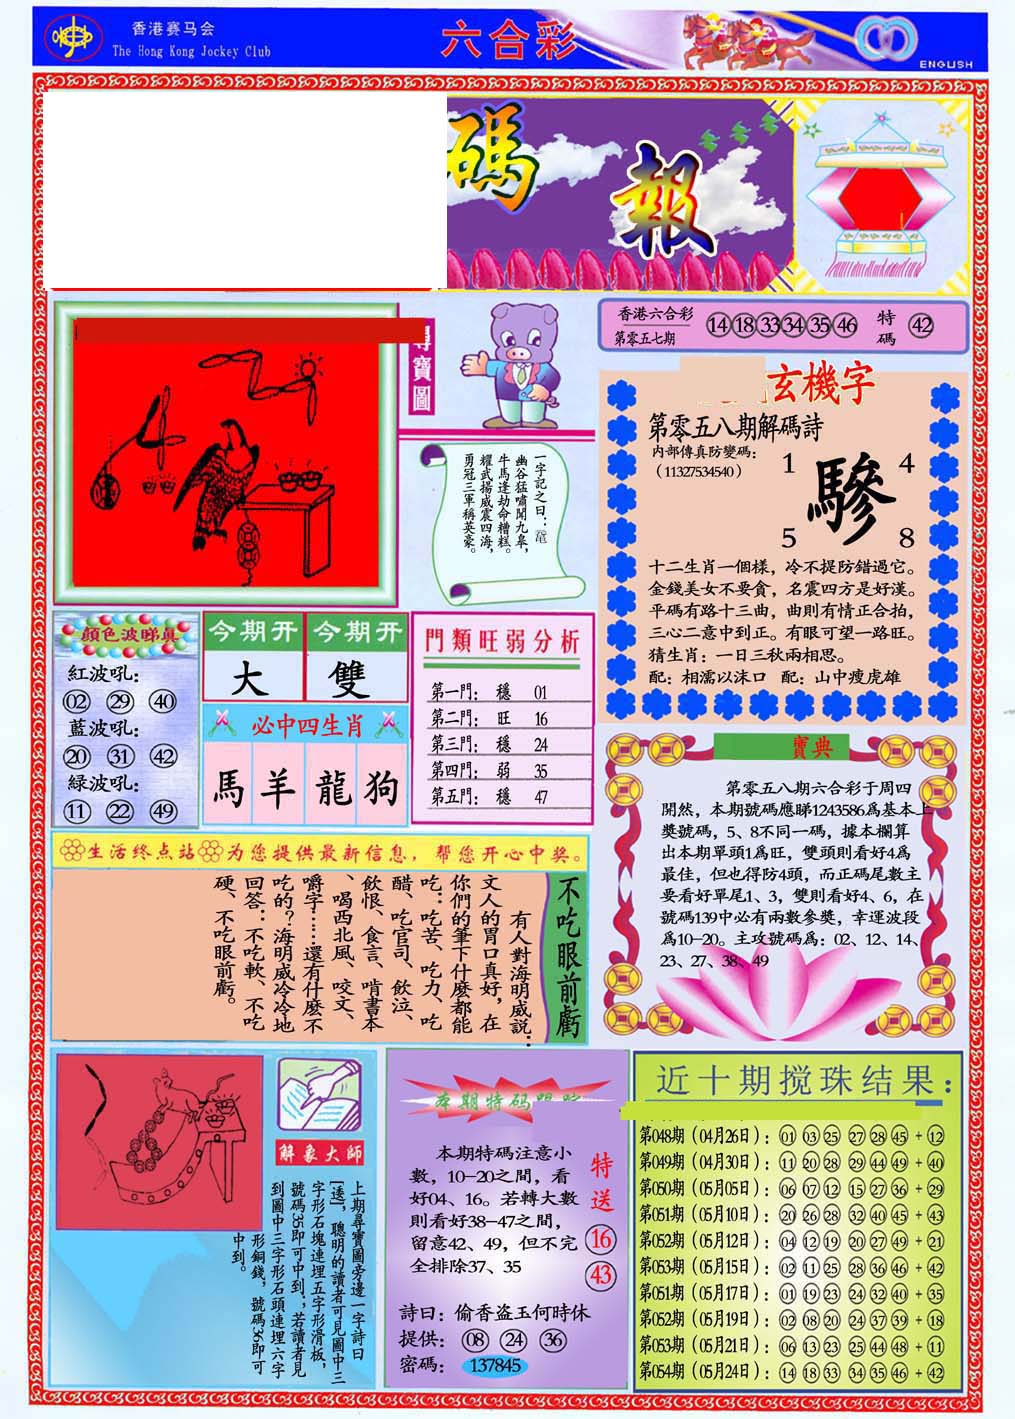 香港赛马会
The Hong Kong Jockey Club
六合彩
ENGLISH
碼報
尋寶圖
香港六合彩
第零五七期
14 18 33 34 35 46 特碼 42
一字記之曰：
幽谷猛嘯聞九皋，
牛馬逢劫命糟糕。
耀武揚威震四海，
勇冠三軍稱英豪。
玄機字
第零五八期解碼詩
內部傳真防變碼：
（11327534540）
1 4
驂
5 8
十二生肖一個樣，冷不提防錯過它。
金錢美女不要貪，名震四方是好漢。
平碼有路十三曲，曲則有情正合拍，
三心二意中到正。有眼可望一路旺。
猜生肖：一日三秋兩相思。
配：相濡以沫口 配：山中瘦虎雄
顏色波睇真
紅波吼：
02 29 40
藍波吼：
20 31 42
緑波吼：
11 22 49
今期开 今期开
大 雙
必中四生肖
馬 羊 龍 狗
門類旺弱分析
第一門： 穩 01
第二門： 旺 16
第三門： 穩 24
第四門： 弱 35
第五門： 穩 47
寶典
第零五八期六合彩于周四
開然，本期號碼應睇1243586爲基本上
獎號碼，5、8不同一碼，據本欄算
出本期單頭1爲旺，雙頭則看好4爲
最佳，但也得防4頭，而正碼尾數主
要看好單尾1、3，雙則看好4、6，在
號碼139中必有兩數參獎，幸運波段
爲10-20。主攻號碼爲：02、12、14、
23、27、38、49
生活终点站 为您提供最新信息，帮您开心中奖。
不吃眼前虧
有人對海明威説：
文人的胃口真好，在
你們的筆下什麼都能
吃：吃苦、吃力、吃
醋、吃官司、飲泣、
飲恨、食言、啃書本
、喝西北風、咬文、
嚼字……還有什麼不
吃的？海明威冷冷地
回答：不吃軟、不吃
硬、不吃眼前虧。
解象大師
上期尋寶圖旁邊一字詩曰
[逶]，聰明的讀者可見圖中三
字形石塊連埋五字形滑板，
號碼35即可中到；若讀者見
到圖中三字形石頭連埋六字
形銅錢，號碼36即可
中到。
本期特码跟踪
本期特码注意小
數，10-20之間，看
好04、16。若轉大數
則看好38-47之間，
留意42、49，但不完
全排除37、35
特送
16
43
詩曰：偷香盗玉何時休
提供： 08 24 36
密碼： 137845
近十期搅珠结果：
第048期（04月26日）：01 03 25 27 28 45 + 12
第049期（04月30日）：11 20 28 29 44 49 + 40
第050期（05月05日）：06 07 12 15 27 36 + 29
第051期（05月10日）：20 26 28 32 40 45 + 43
第052期（05月12日）：04 12 19 20 27 49 + 21
第053期（05月15日）：02 11 25 28 36 46 + 42
第051期（05月17日）：01 19 23 24 32 40 + 35
第052期（05月19日）：02 08 20 24 37 39 + 18
第053期（05月21日）：06 13 23 25 44 48 + 11
第054期（05月24日）：14 18 33 34 35 46 + 42